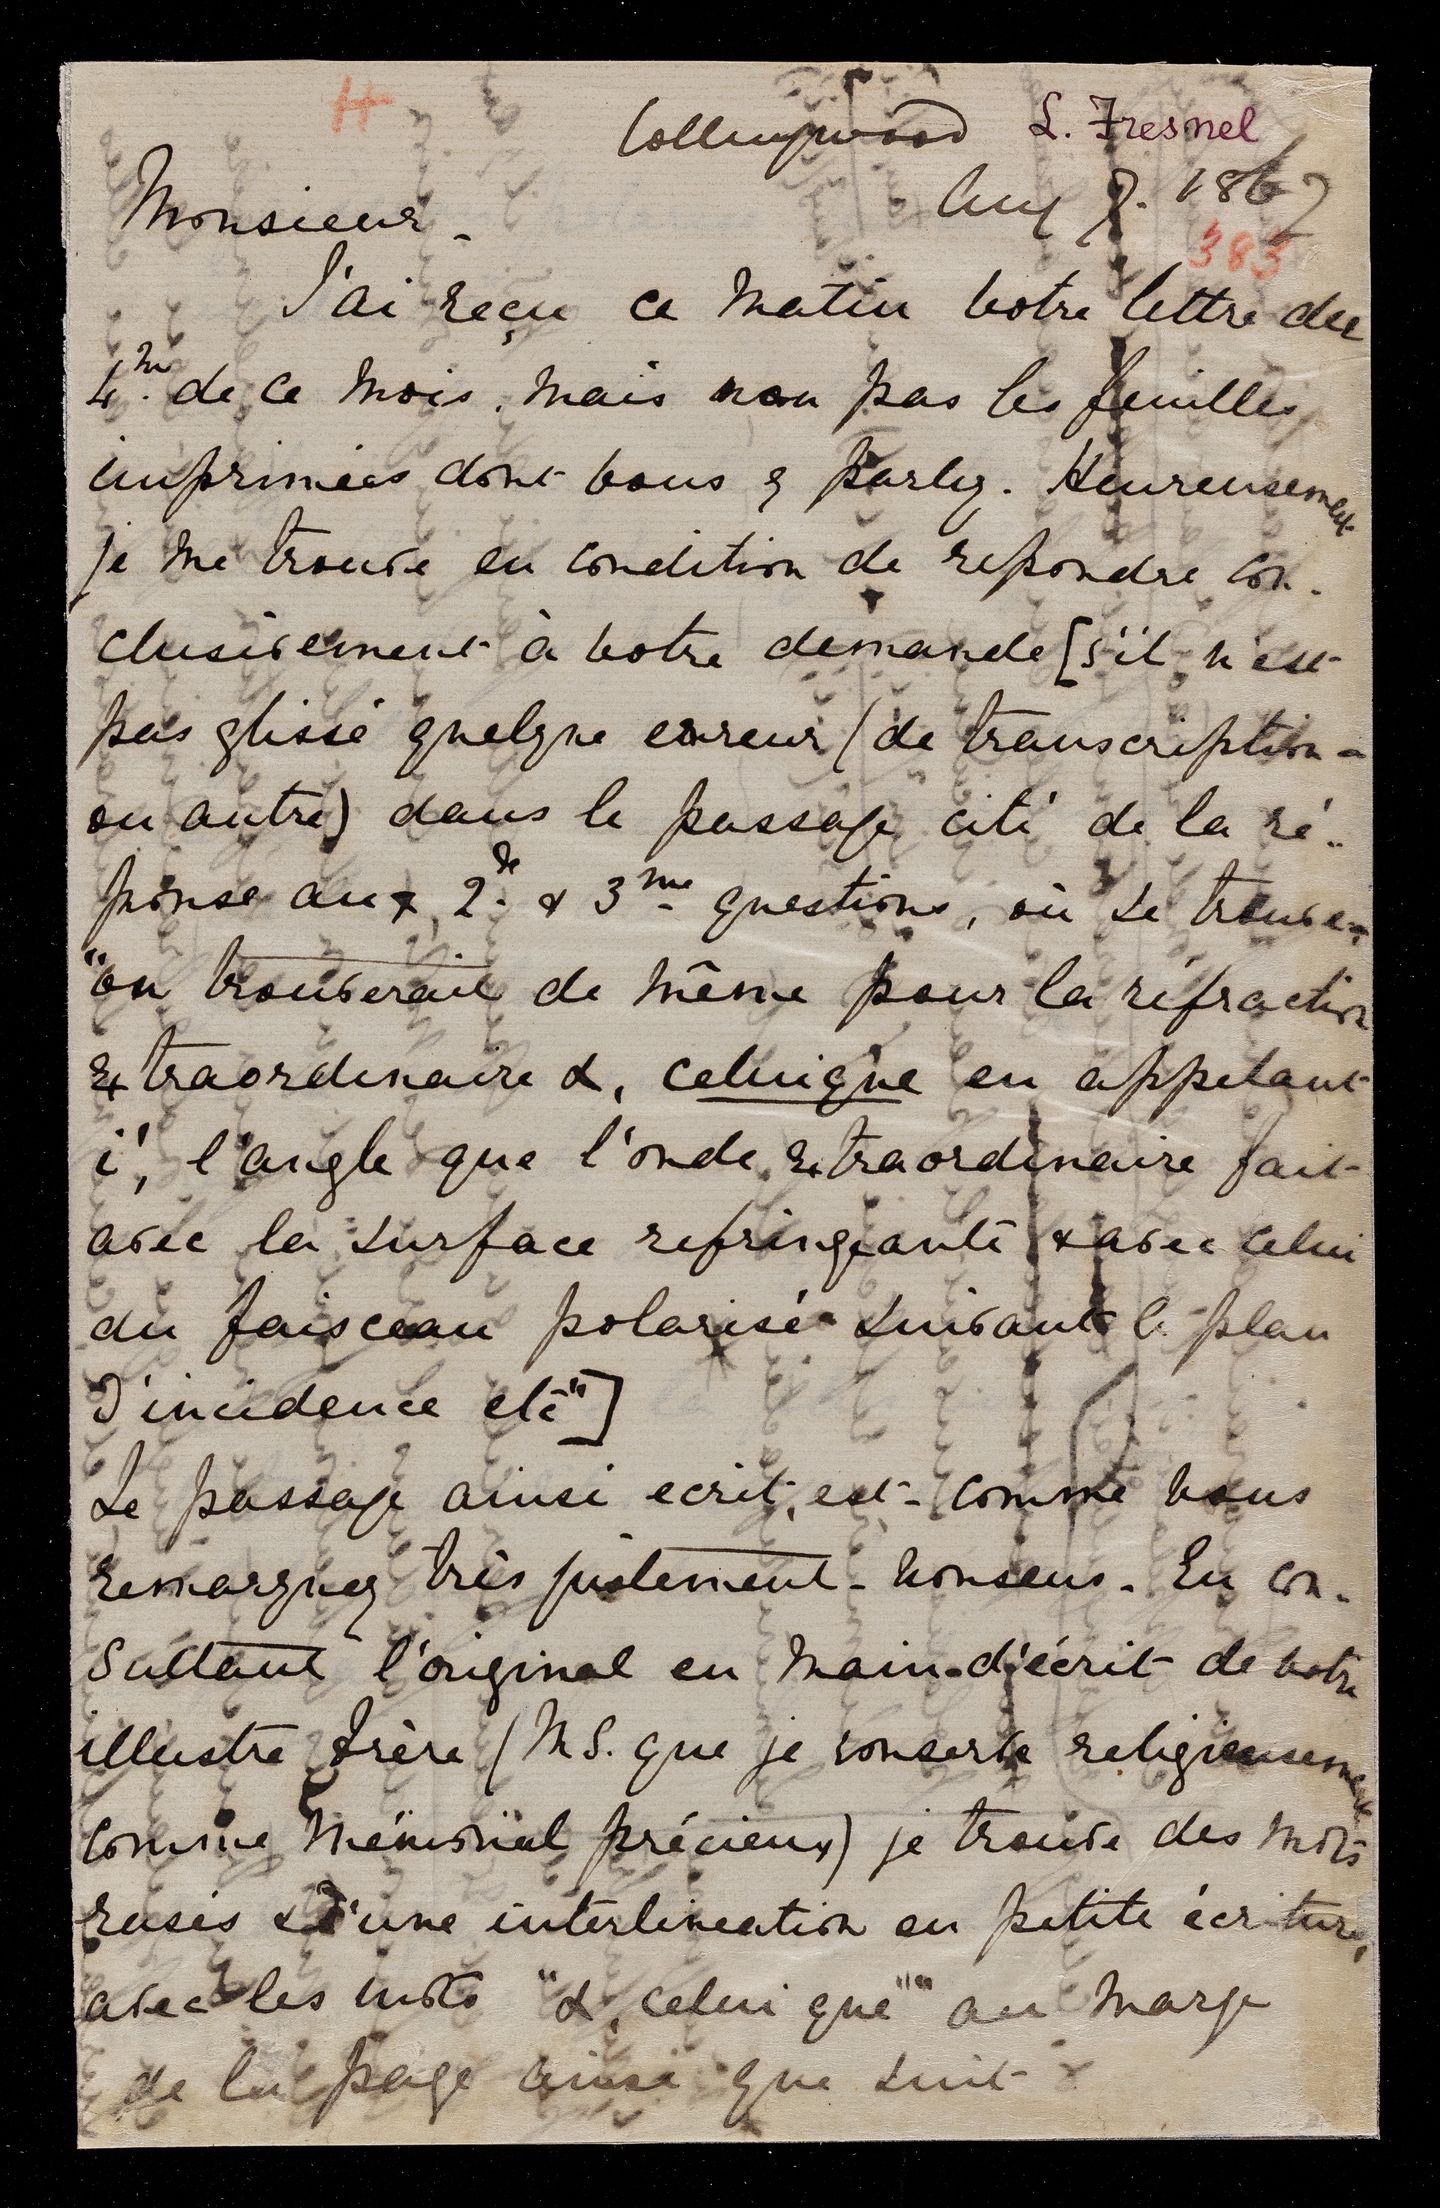 H
Collingwood L. Fresnel
Aug 7. 1867
383
Monsieur.
J'ai reçu ce matin votre lettre du
4me de ce mois, mais non pas les feuilles
imprimées dont vous y parlez. Heureusement
je me trouve en condition de repondre con-
clusivement à votre demande [s'il n'est
pas glissé quelque erreur (de transcription
ou autre) dans le passage cité de la ré-
ponse aux 2de & 3me questions, où se trouve
"on trouverait de même pour la réfraction
extraordinaire &, celui que en appelant
i', l'angle que l'onde extraordinaire fait
avec la surface refringeante & avec celui
du faisceau polarisé suivant le plan
d'incidence etc"]
Le passage ainsi ecrit, est - comme vous
remarquez très justement - nonsens. En con-
sultant l'original en main-d'écrit de votre
illustre frère (M S. que je conserve religieusement
comme mémorial précieux) je trouve des mots
rasés & d'une interlineation en petite écriture,
avec les mots "&, celui que"" au marge
de la page ainsi que suit